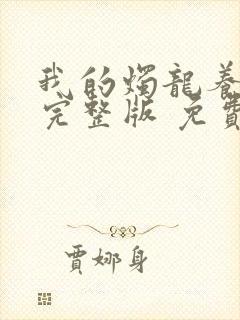 我的燭龍養
完整版 免費
賈娜身